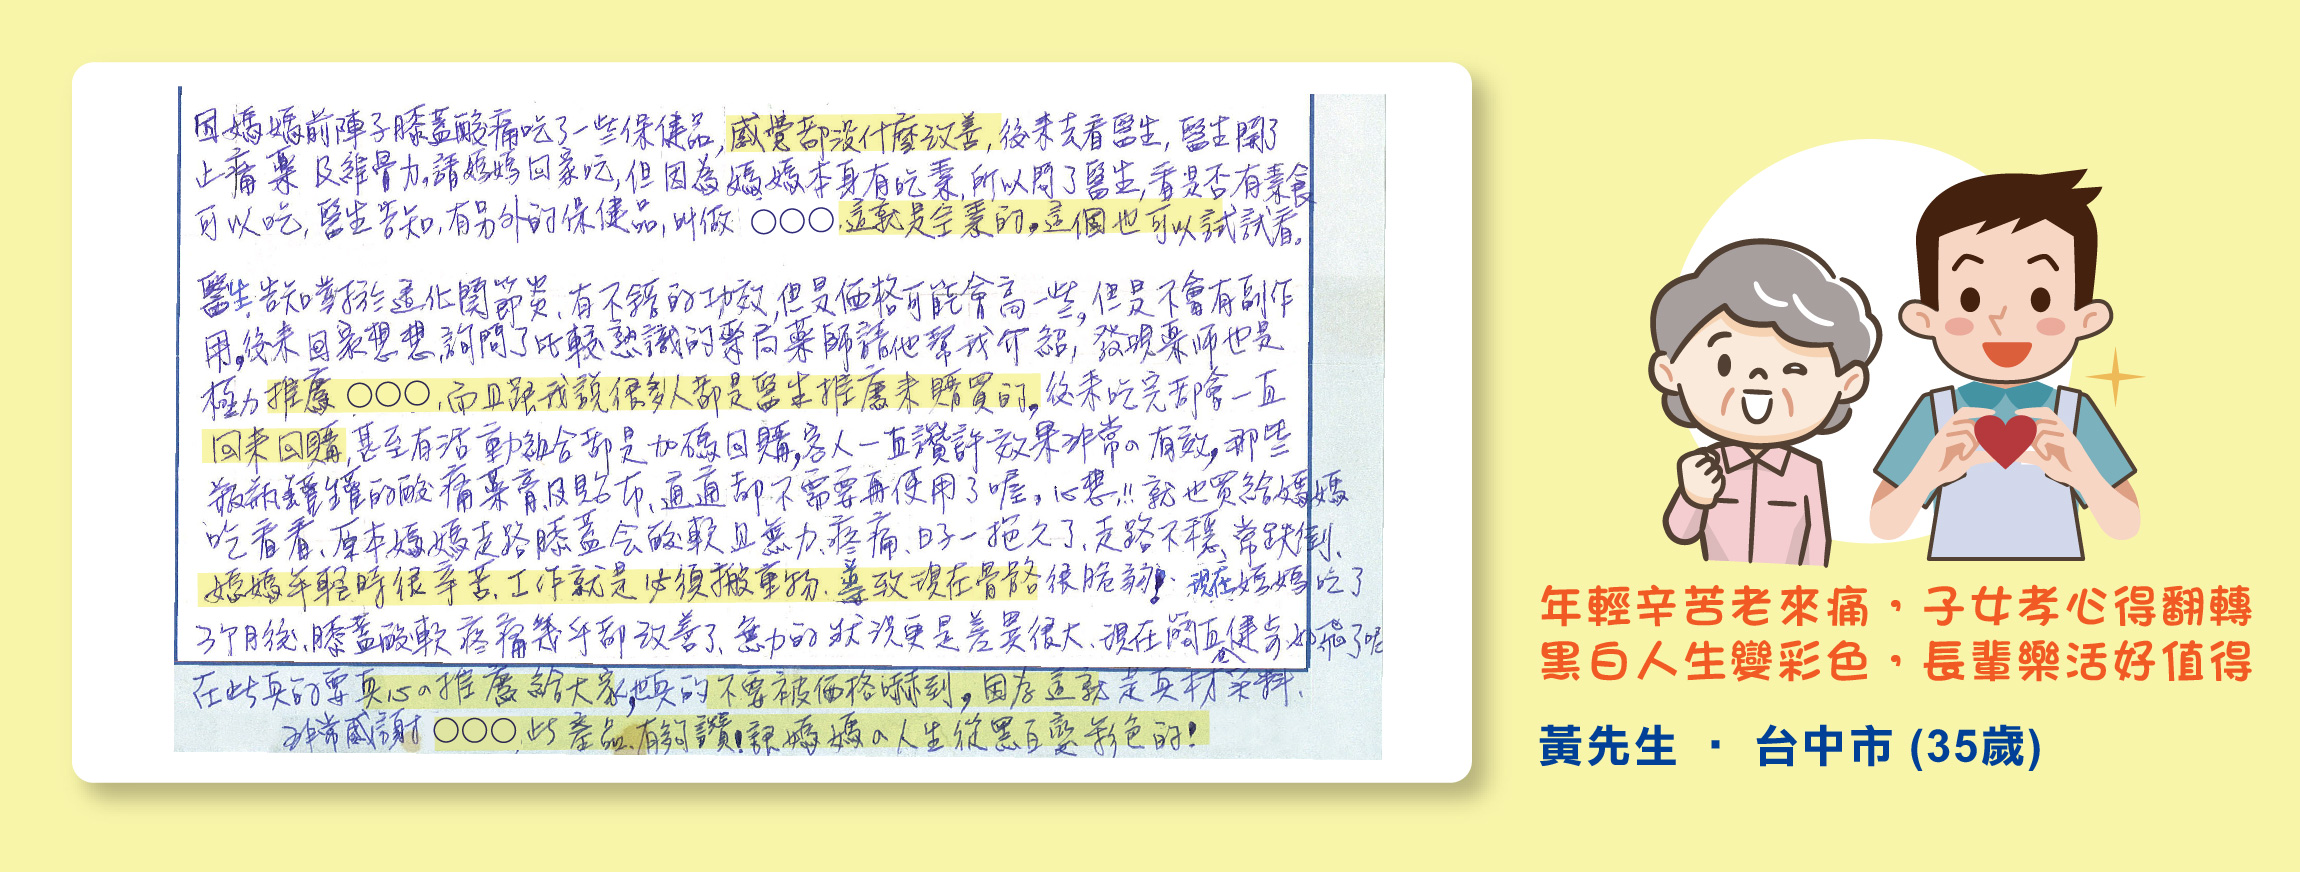 因媽媽前陣子膝蓋酸痛吃了一些保健品,感覺都没什麼改善,後來去看醫生,醫生開了
止痛藥及維骨力,請媽媽回家吃,但因為媽媽本身有吃素,所以問了醫生,看是否有素食
可以吃,醫生告知,有另外的保健品,叫做 ○○○.這就是全素的。這個也可以試試看。
醫生告知對於退化關節炎、有不錯的功效,但是価格可能會高一些,但是不會有副作
用。後來回家想想,詢問了比較熟識的藥局藥師請他幫我介紹,發現藥師也是
極力推薦 ○○○.而且跟我說很多人都是醫生推薦來購買的,後來吃完都會一直
回來回購,甚至有活動組合都是加碼回購,客人一直讚許效果非常の有效,那些
瓶瓶罐罐的酸痛藥膏及貼布、通通都不需要再使用了喔。心想!!就也買給媽媽
吃看看、原本媽媽走路膝蓋会酸軟且無力、疼痛、日子一拖久了、走路不穩、常跌倒、
媽媽年輕時很辛苦、工作就是必須搬重物、導致現在骨骼很脆弱!現在媽媽吃了
3個月後、膝蓋酸軟疼痛幾乎都改善了、無力的狀況更是差異很大、現在簡直健步如飛了呢
在此真的要真心の推薦給大家,也真的不要被価格嚇到,因為這就是真材実料、
非常感謝 ○○○.此產品、有夠讚!讓媽媽の人生從黑白變彩色的!
年輕辛苦老來痛，子女孝心得翻轉
黑白人生變彩色，長輩樂活好值得
黃先生 ・ 台中市 (35歲)